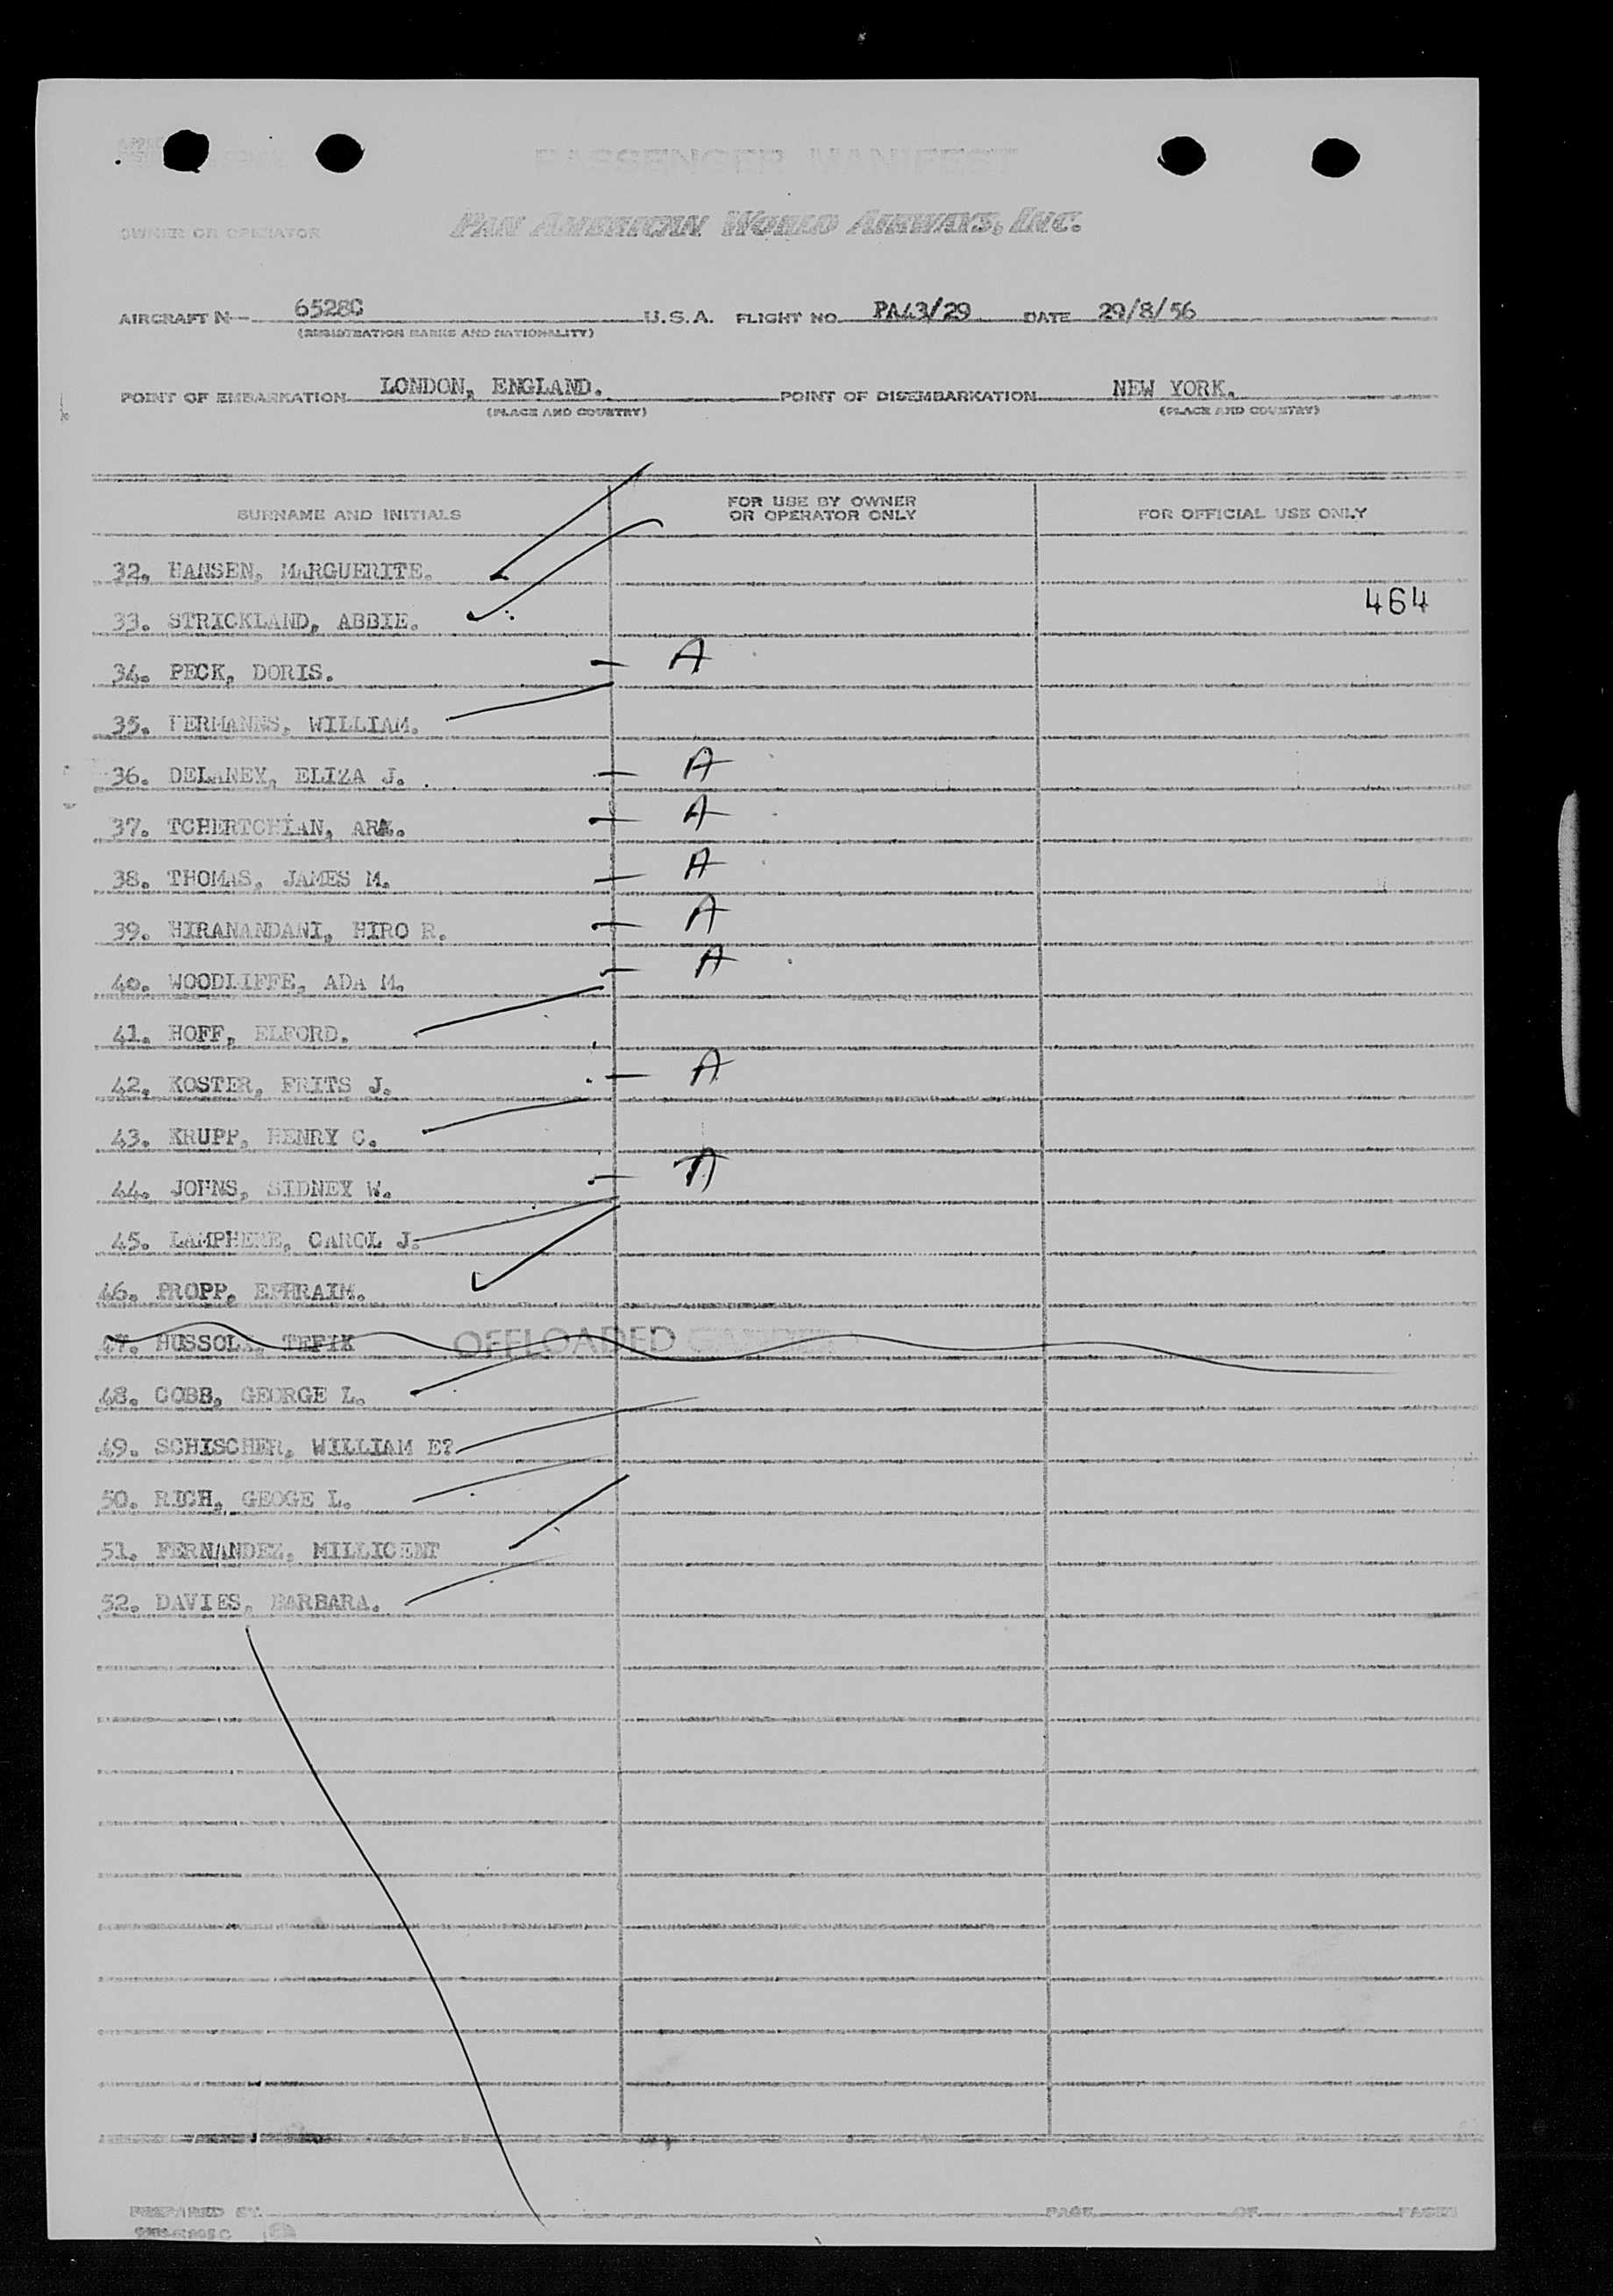 PASSENGER MANIFEST
OWNER OR OPERATOR PAN AMERICAN WORLD AIRWAYS, INC.
AIRCRAFT N— 6528C U.S.A. FLIGHT NO. PA43/29 DATE 29/8/56
(REGISTRATION MARKS AND NATIONALITY)
POINT OF EMBARKATION LONDON, ENGLAND. POINT OF DISEMBARKATION NEW YORK.
(PLACE AND COUNTRY) (PLACE AND COUNTRY)
SURNAME AND INITIALS FOR USE BY OWNER OR OPERATOR ONLY FOR OFFICIAL USE ONLY
32. HANSEN, MARGUERITE.
464
33. STRICKLAND, ABBIE.
34. PECK, DORIS. — A
35. HERMANNS, WILLIAM.
36. DELANEY, ELIZA J. — A
37. TCHERTCHIAN, ARA. — A
38. THOMAS, JAMES M. — A
39. HIRANANDANI, HIRO R. — A
40. WOODLIFFE, ADA M. — A
41. HOFF, ELFORD.
42. KOSTER, FRITS J. — A
43. KRUPP, HENRY C.
44. JOHNS, SIDNEY W. — A
45. LAMPHERE, CAROL J.
46. PROPP, EPHRAIM.
47. HUSSOLA, TEFIK OFFLOADED
48. COBB, GEORGE L.
49. SCHISCHER, WILLIAM E?
50. RICH, GEOGE L.
51. FERNANDEZ, MILLICENT
52. DAVIES, BARBARA.
PREPARED BY PAGE OF PAGES